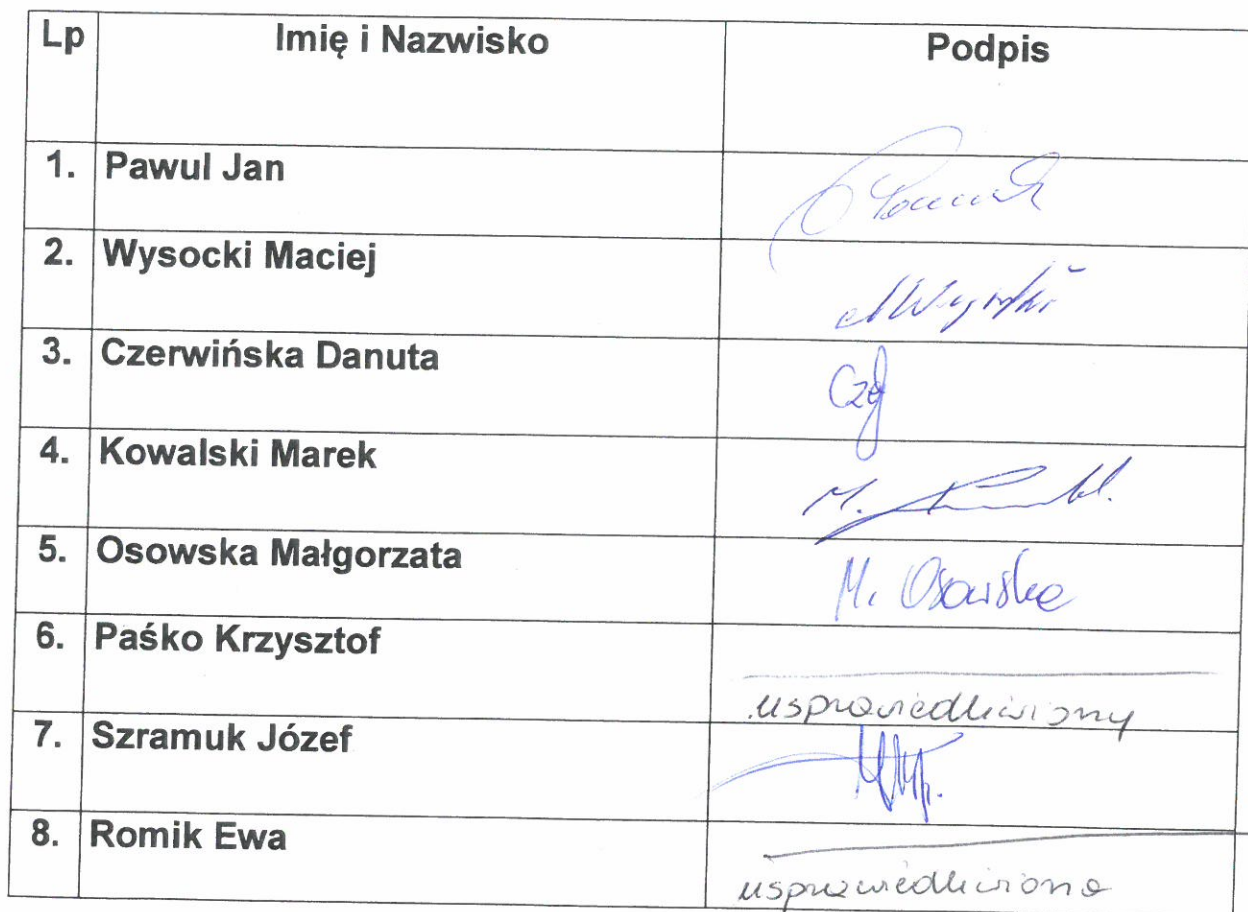 Lp Imię i Nazwisko Podpis
1. Pawul Jan
2. Wysocki Maciej
3. Czerwińska Danuta
4. Kowalski Marek
5. Osowska Małgorzata M. Osowska
6. Paśko Krzysztof
usprawiedliwiony
7. Szramuk Józef
8. Romik Ewa
usprawiedliwiona